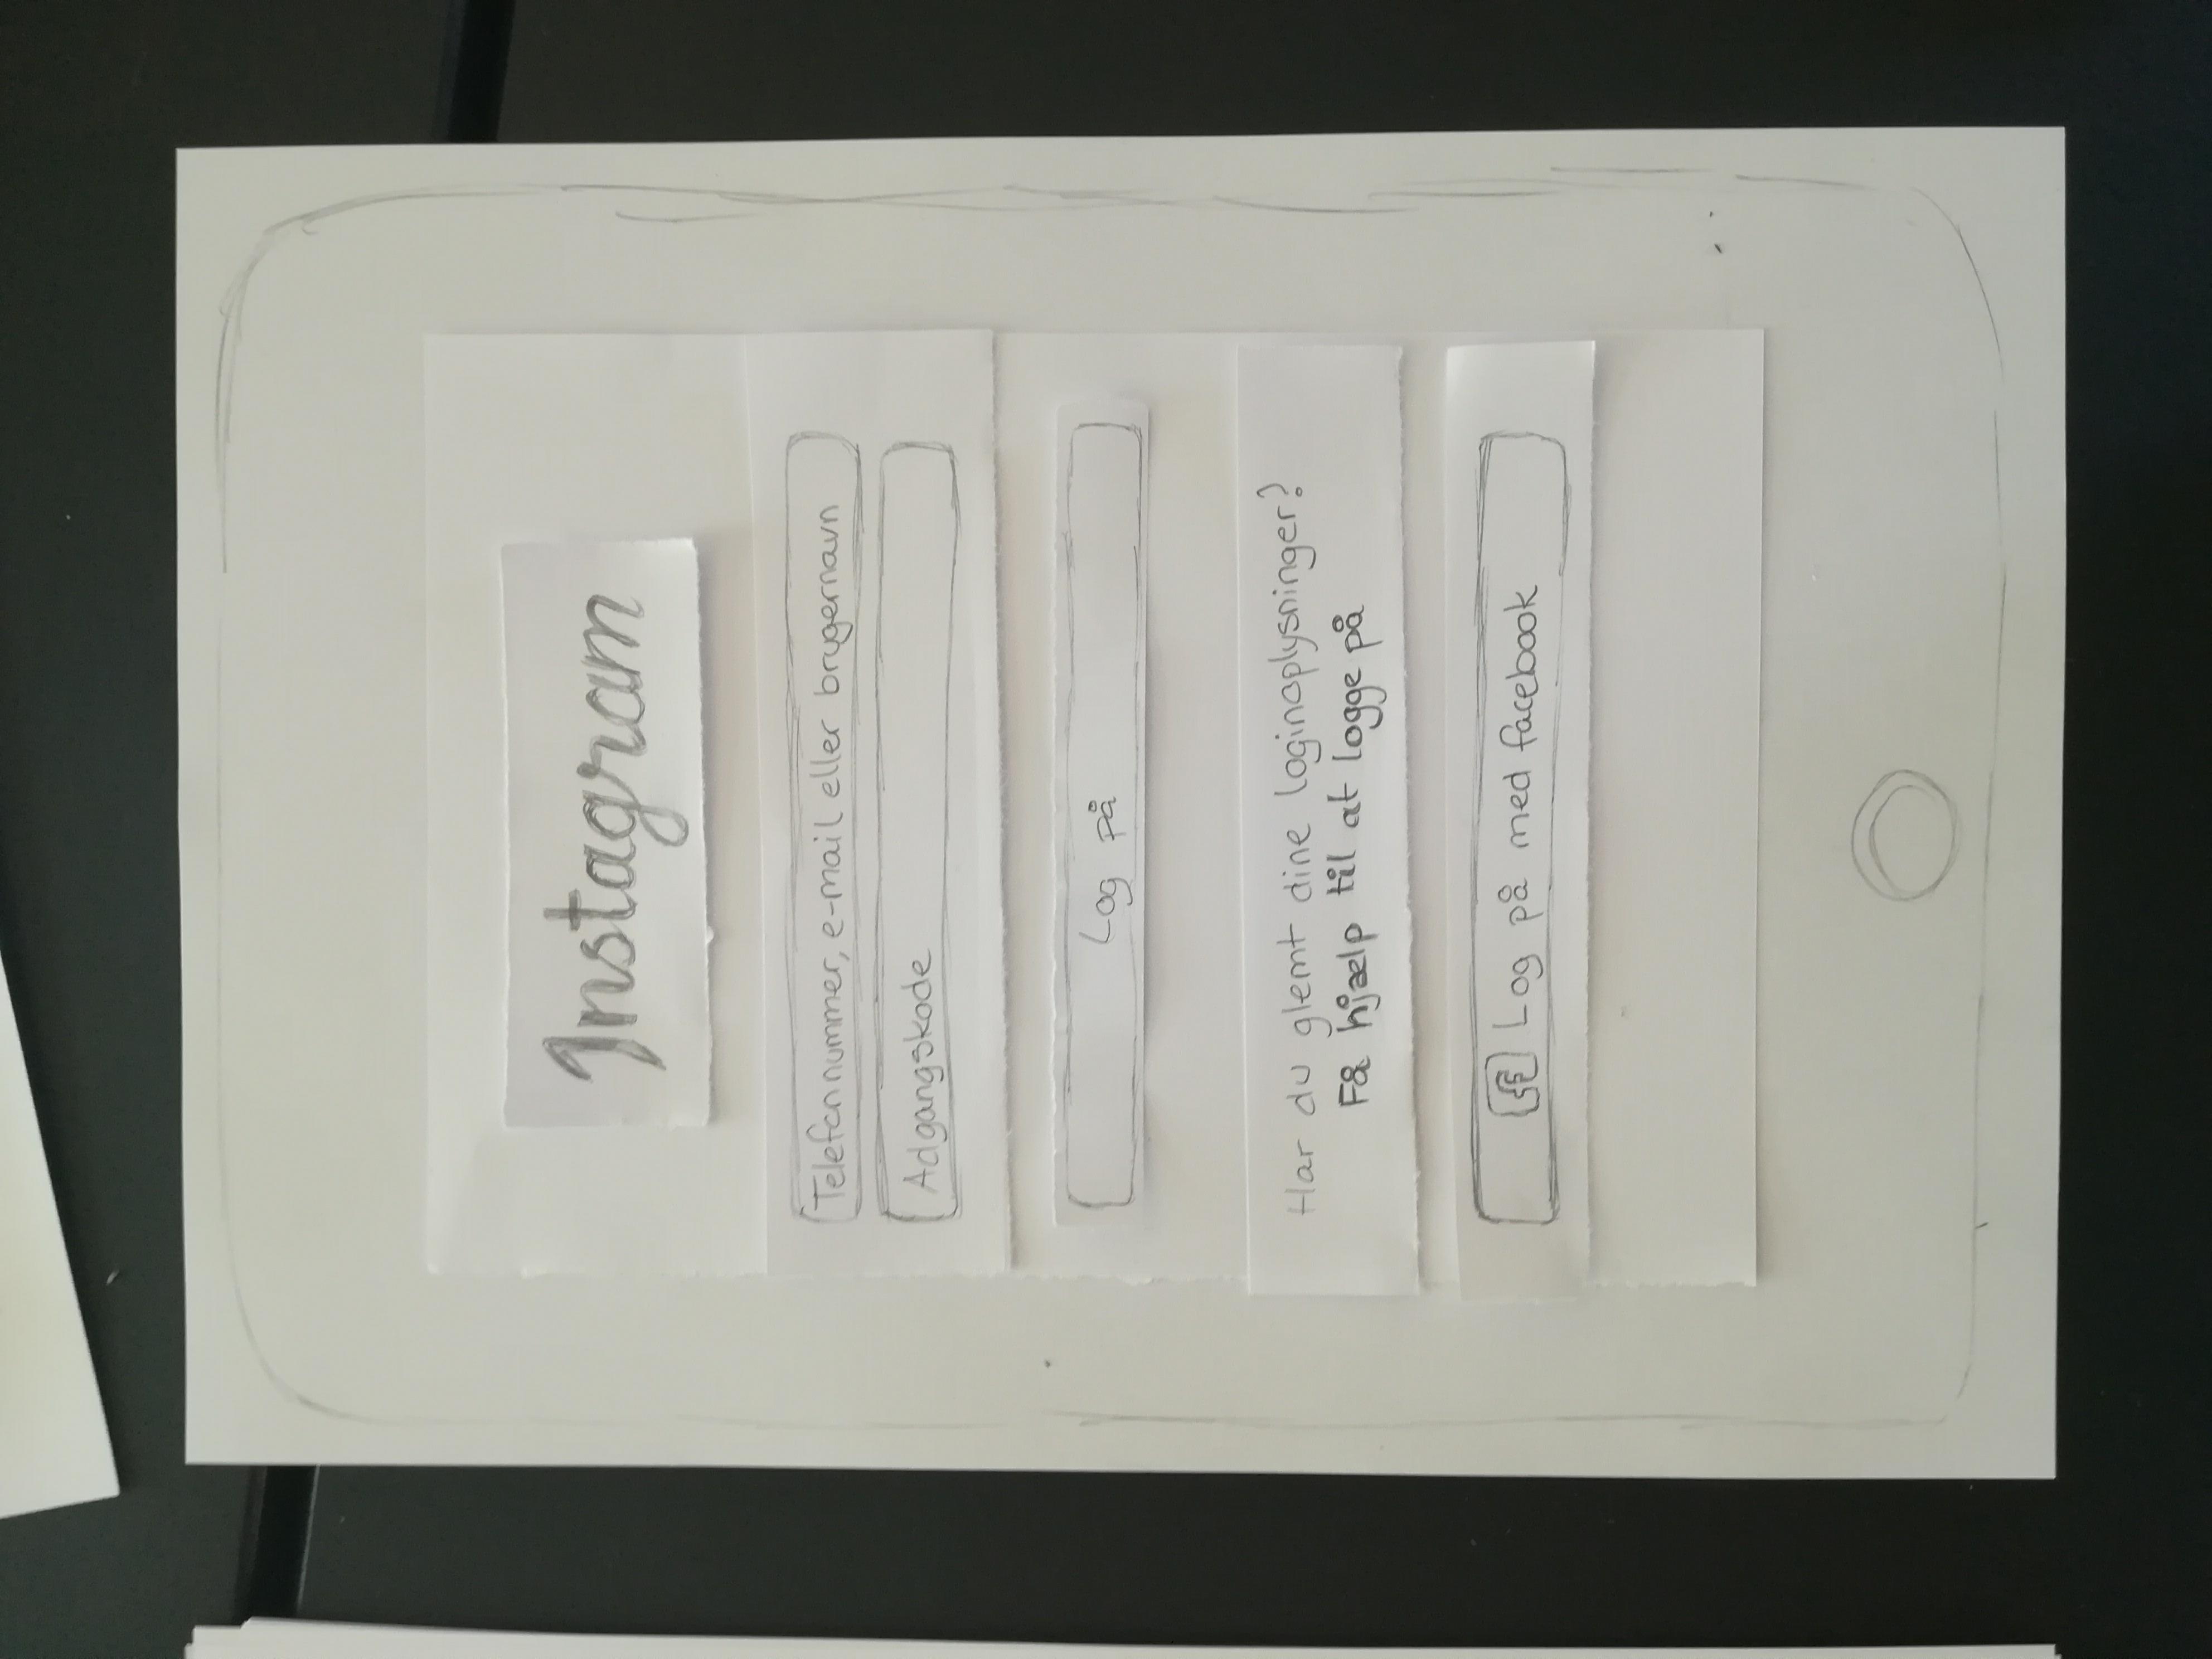 Instagram
Telefonnummer, e-mail eller brugernavn
Adgangskode
Log på
Har du glemt dine loginoplysninger?
Få hjælp til at logge på
f Log på med facebook